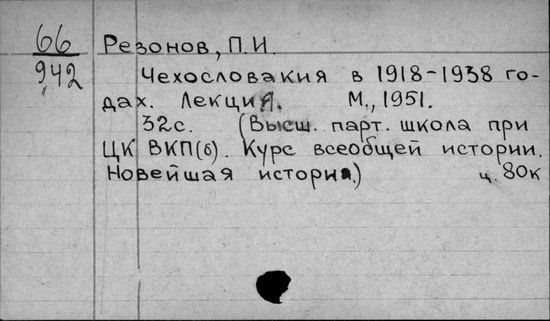 66
942
Резонов, П.И.
Чехословакия в 1918-1938 го-
дах. Лекция. М., 1951.
32с. (Высш. парт. школа при
ЦК ВКП(б). Курс всеобщей истории.
Новейшая история.) ц. 80к